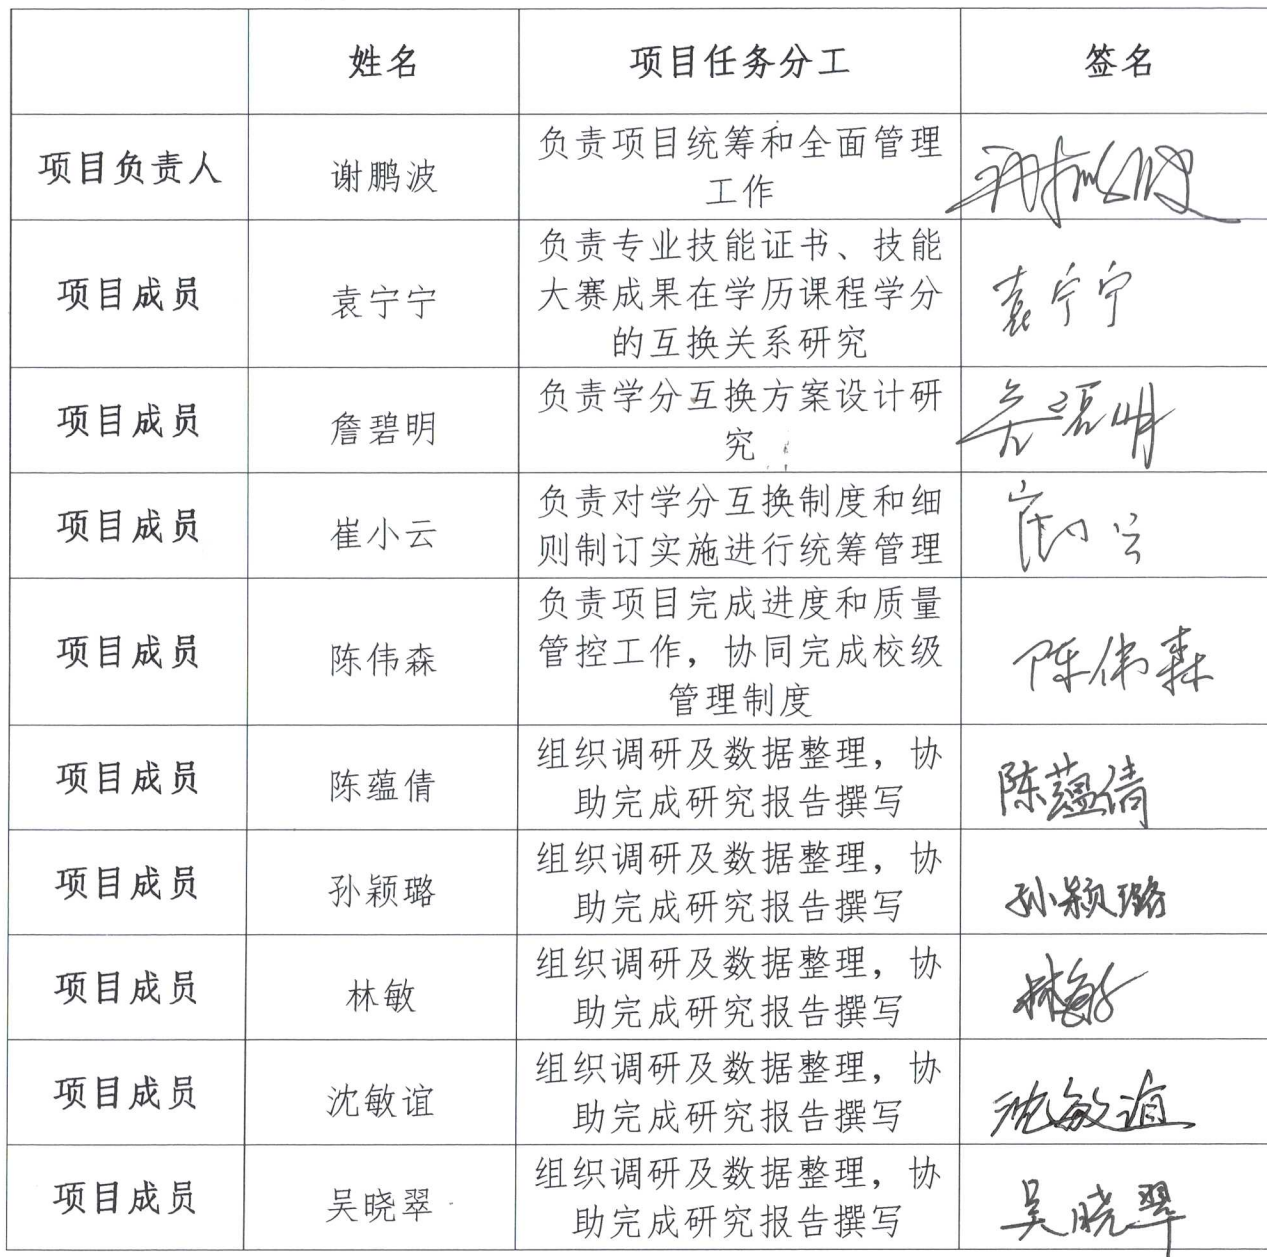 姓名 项目任务分工 签名
项目负责人 谢鹏波 负责项目统筹和全面管理
工作
项目成员 袁宁宁 负责专业技能证书、技能
大赛成果在学历课程学分
的互换关系研究 袁宁宁
项目成员 詹碧明 负责学分互换方案设计研
究
项目成员 崔小云 负责对学分互换制度和细
则制订实施进行统筹管理
项目成员 陈伟森 负责项目完成进度和质量
管控工作，协同完成校级
管理制度 陈伟森
项目成员 陈蕴倩 组织调研及数据整理，协
助完成研究报告撰写 陈蕴倩
项目成员 孙颖璐 组织调研及数据整理，协
助完成研究报告撰写 孙颖璐
项目成员 林敏 组织调研及数据整理，协
助完成研究报告撰写 林敏
项目成员 沈敏谊 组织调研及数据整理，协
助完成研究报告撰写 沈敏谊
项目成员 吴晓翠 组织调研及数据整理，协
助完成研究报告撰写 吴晓翠